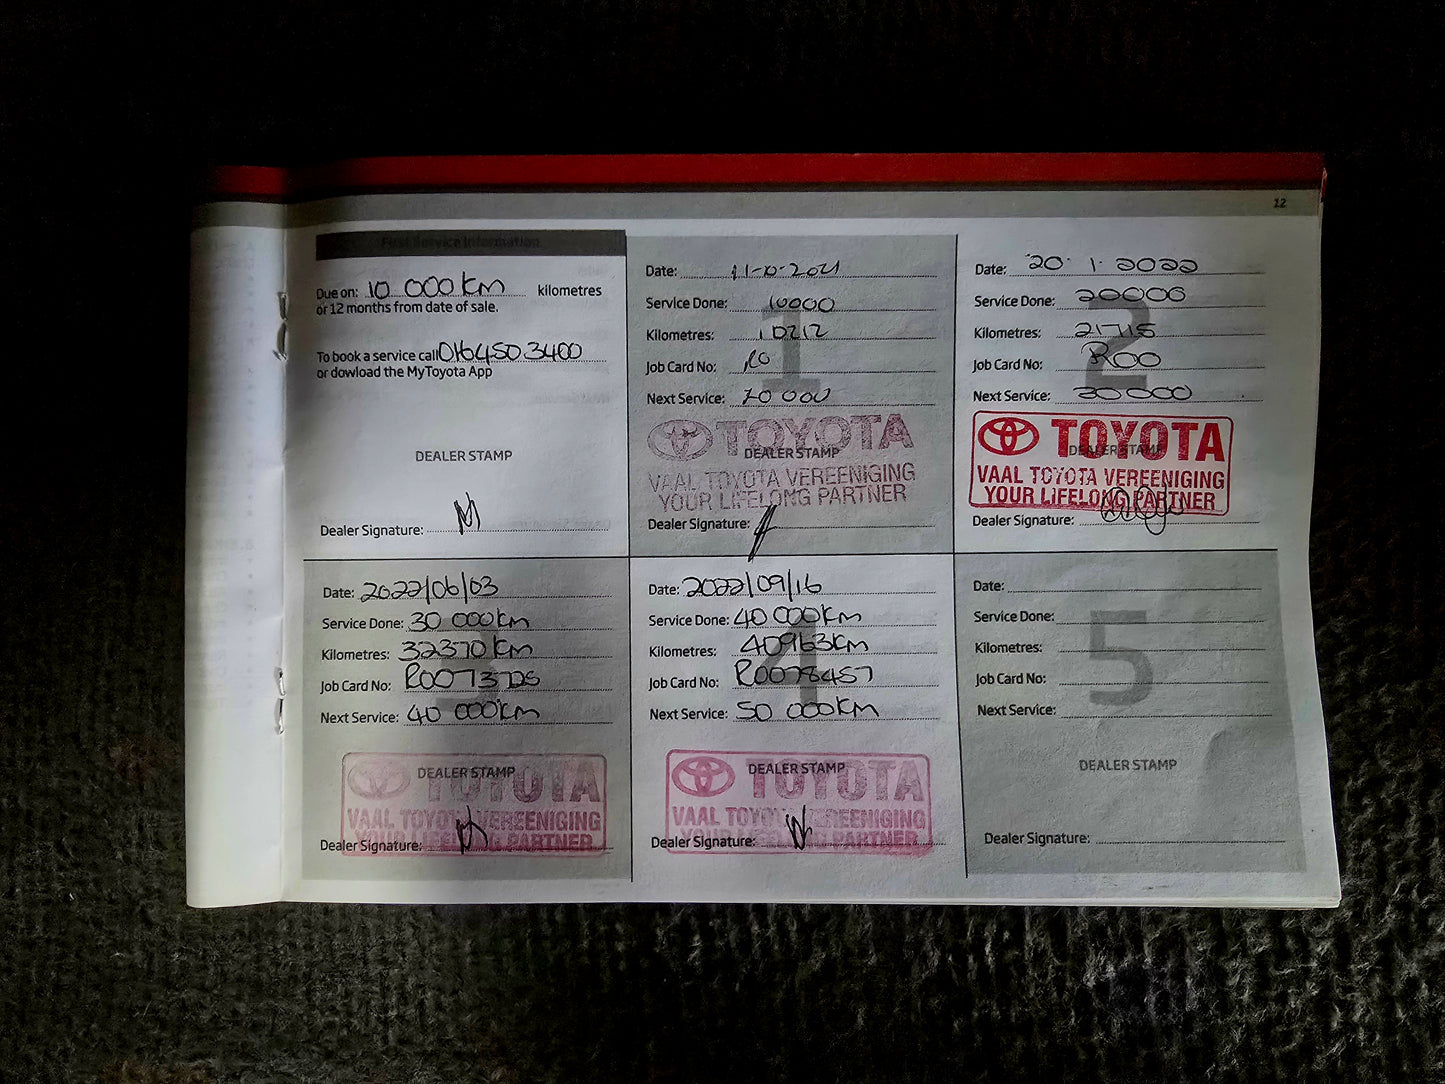 12
First Service Information
Due on: 10 000km kilometres
or 12 months from date of sale.
To book a service call 016 450 3400
or dowload the MyToyota App
DEALER STAMP
Dealer Signature:
1
Date: 11-10-2021
Service Done: 10000
Kilometres: 10212
Job Card No: R0
Next Service: 20 000
TOYOTA
DEALER STAMP
VAAL TOYOTA VEREENIGING
YOUR LIFELONG PARTNER
Dealer Signature:
2
Date: 20.1.2022
Service Done: 20000
Kilometres: 21715
Job Card No: R00
Next Service: 30000
TOYOTA
DEALER STAMP
VAAL TOYOTA VEREENIGING
YOUR LIFELONG PARTNER
Dealer Signature:
3
Date: 2022/06/03
Service Done: 30 000km
Kilometres: 32370km
Job Card No:
Next Service: 40 000km
DEALER STAMP
TOYOTA
VAAL TOYOTA VEREENIGING
YOUR LIFELONG PARTNER
Dealer Signature:
4
Date: 2022/09/16
Service Done: 40 000km
Kilometres: 40963km
Job Card No: R0078457
Next Service: 50 000km
DEALER STAMP
TOYOTA
VAAL TOYOTA VEREENIGING
YOUR LIFELONG PARTNER
Dealer Signature:
5
Date:
Service Done:
Kilometres:
Job Card No:
Next Service:
DEALER STAMP
Dealer Signature: